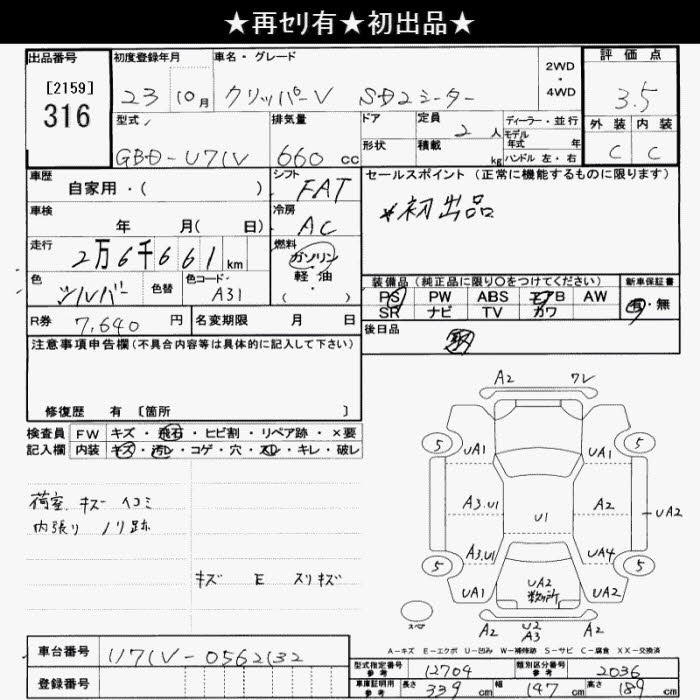 ★再セリ有★初出品★
出品番号
[2159]
316
初度登録年月
23 10月
車名・グレード
クリッパーV SD2シーター
2WD
・
4WD
評価点
3.5
外装 内装
C C
型式
GBD-U71V
排気量
660 cc
ドア
形状
定員
2 人
積載
kg
ディーラー・並行
モデル
年式 年
ハンドル 左・右
車歴
自家用・( )
シフト
FAT
セールスポイント(正常に機能するものに限ります)
*初出品
車検
年 月( 日)
冷房
AC
走行
2万6千661 km
燃料
ガソリン
軽油
( )
色
シルバー
色替
色コード
A31
装備品(純正品に限り○をつけてください)
PS PW ABS エアB AW
SR ナビ TV カワ
新車保証書
有・無
R券
7,640 円
名変期限 月 日
後日品
注意事項申告欄(不具合内容等は具体的に記入して下さい)
修復歴 有 [箇所 ]
検査員
記入欄
FW キズ・飛石・ヒビ割・リペア跡・×要
内装 キズ・汚レ・コゲ・穴・スレ・キレ・破レ
荷室 キズ ヘコミ
内張り ノリ跡
キズ E スリキズ
A2 ワレ
5 UA1 UA1 5
A3.U1 U1 A2 UA2
A3.U1 UA4
5 UA1 UA2 数ヶ所 UA2 5
スペア
A2 U2 A3 A2
A-キズ E-エクボ U-凹み W-補修跡 S-サビ C-腐食 XX-交換済
車台番号
U71V-0562132
登録番号
型式指定番号
参考
12704
類別区分番号
参考
2036
車庫証明用
参考
長さ 339 cm 幅 147 cm 高さ 189 cm